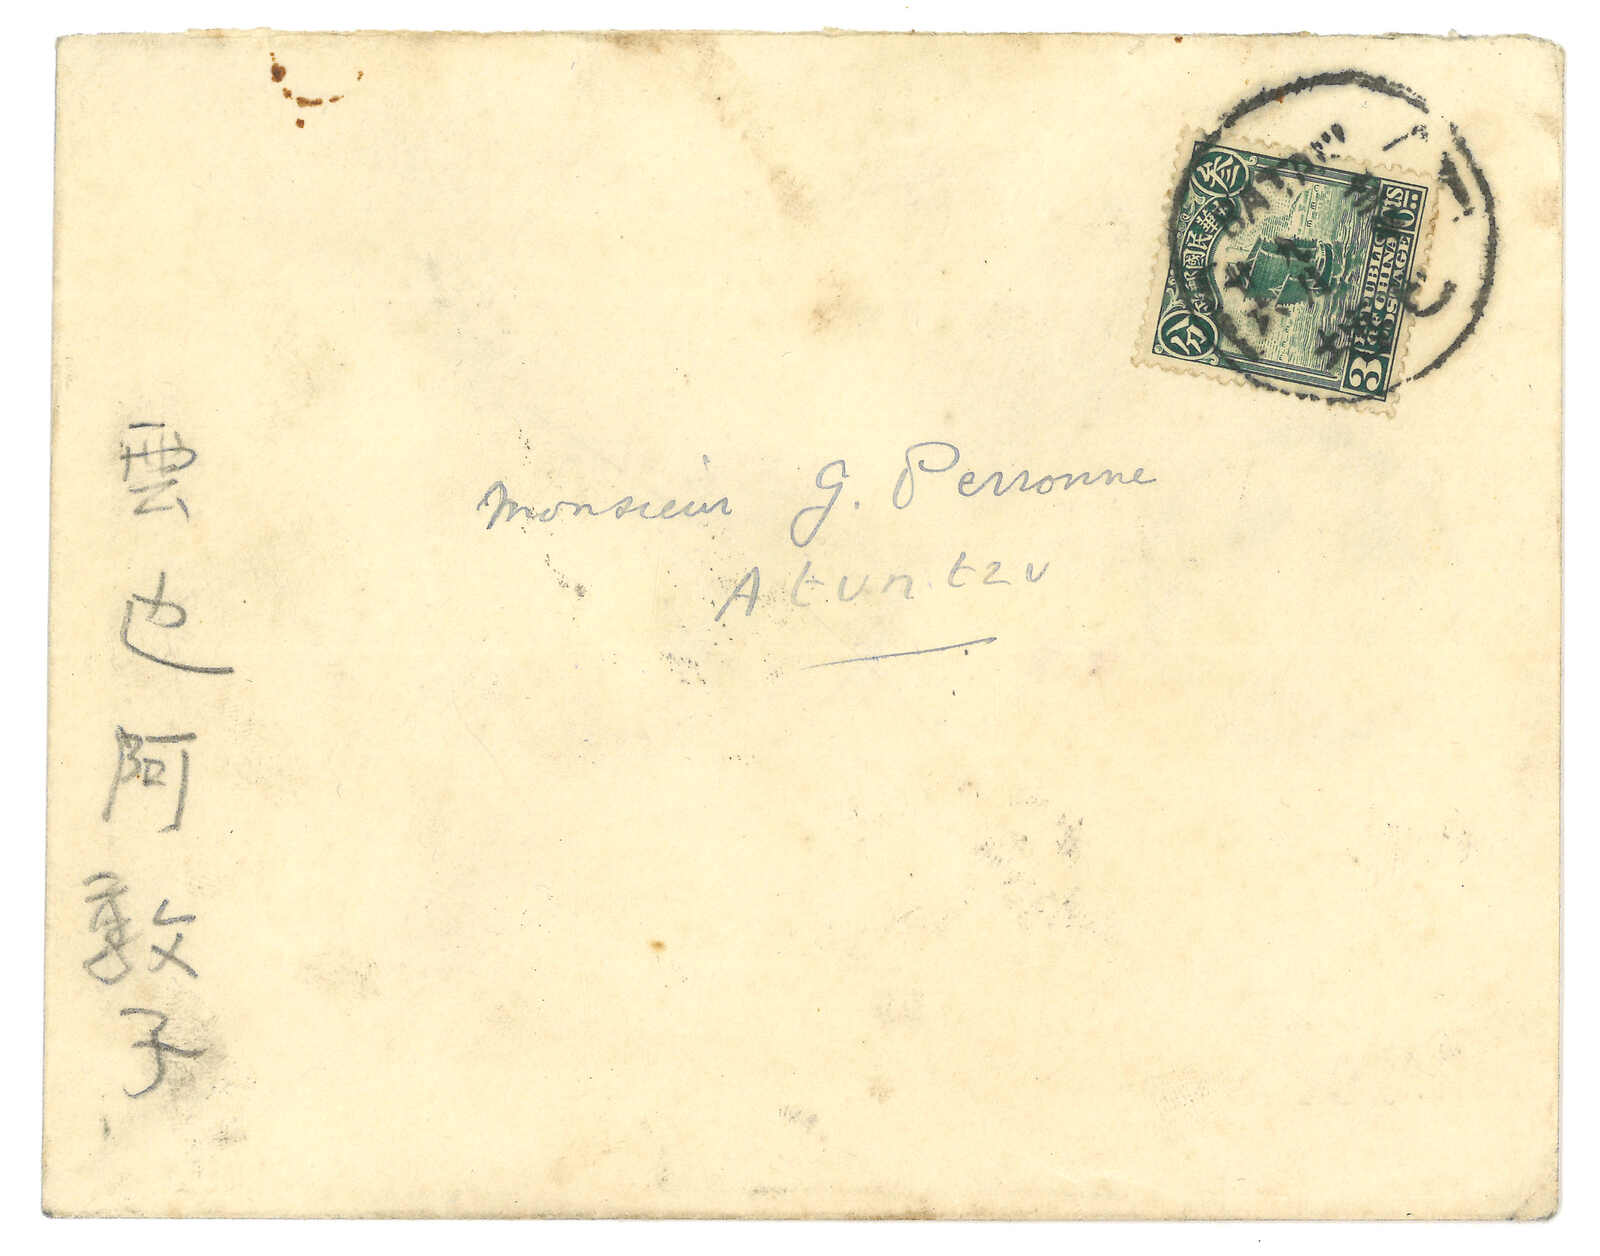 Monsieur G. Perronne
Atuntzu
雲也阿敦子
中華民國郵政
叁
分
REPUBLIC
OF CHINA
POSTAGE
3
CTS